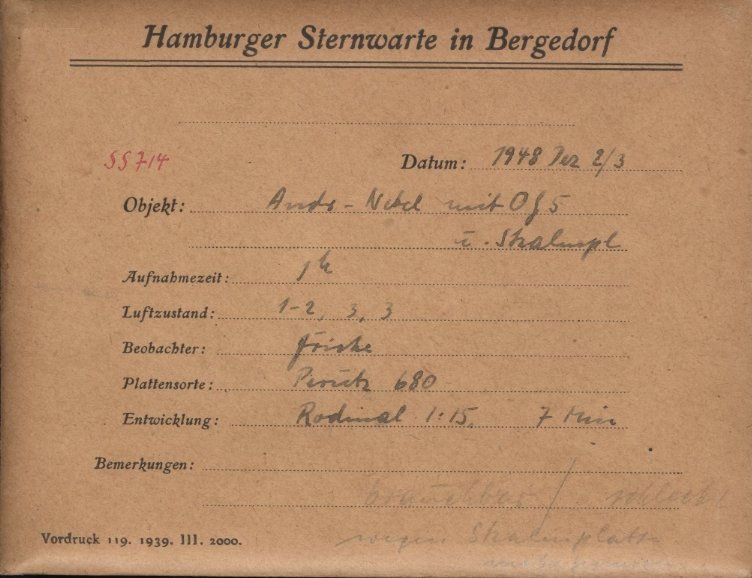 Hamburger Sternwarte in Bergedorf
SS714
Datum: 1948 Dez 2/3
Objekt: Andr-Nebel mit OG5
u. Skalenpl
Aufnahmezeit: 1h
Luftzustand: 1-2, 3, 3
Beobachter:
Plattensorte: Perutz 680
Entwicklung: Rodinal 1:15, 7 Min
Bemerkungen:
brauchbar / schlecht
wegen Skalenplatte
Vordruck 119. 1939. III. 2000.